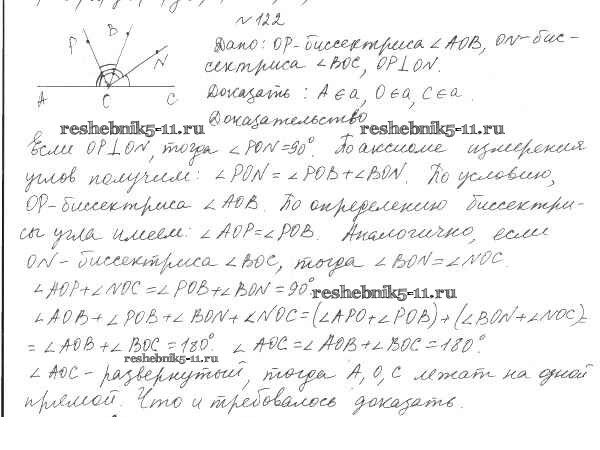 №122
P B N
A C C
Дано: OP-биссектриса ∠AOB, ON-бис-
сектриса ∠BOC, OP⊥ON.
Доказать: A∈a, O∈a, C∈a.
Доказательство
reshebnik5-11.ru reshebnik5-11.ru
Если OP⊥ON, тогда ∠PON=90°. По аксиоме измерения
углов получим: ∠PON=∠POB+∠BON. По условию,
OP-биссектриса ∠AOB. По определению биссектри-
сы угла имеем: ∠AOP=∠POB. Аналогично, если
ON-биссектриса ∠BOC, тогда ∠BON=∠NOC.
∠AOP+∠NOC=∠POB+∠BON=90°
reshebnik5-11.ru
∠AOB+∠POB+∠BON+∠NOC=(∠APO+∠POB)+(∠BON+∠NOC)=
=∠AOB+∠BOC=180°. ∠AOC=∠AOB+∠BOC=180°.
reshebnik5-11.ru
∠AOC-развернутый, тогда A, O, C лежат на одной
прямой. Что и требовалось доказать.